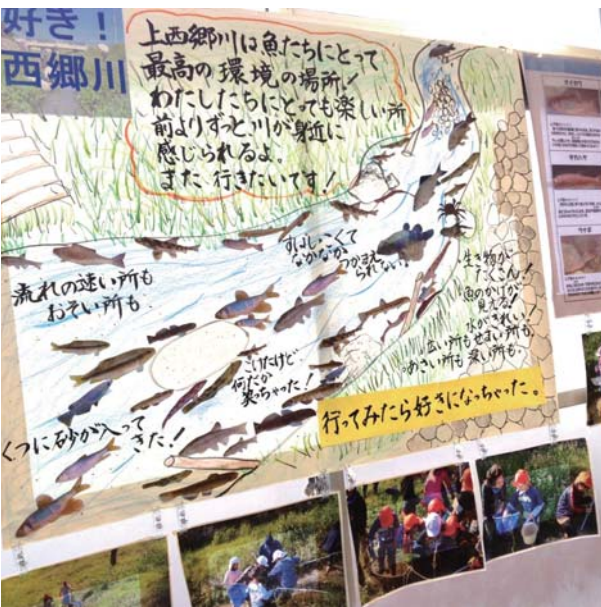 好き!
西郷川
上西郷川は魚たちにとって
最高の環境の場所!
わたしたちにとっても楽しい所
前よりずっと川が身近に
感じられるよ。
また行きたいです!
流れの速い所も
おそい所も
すばしっこくて
なかなか
つかまえ
られない。
生き物が
たくさん!
魚のかげが
見える!
水がきれい!
広い所もせまい所も
あさい所も深い所も。
こけたけど
何だか
笑っちゃった!
くつに砂が入って
きた!
行ってみたら好きになっちゃった。